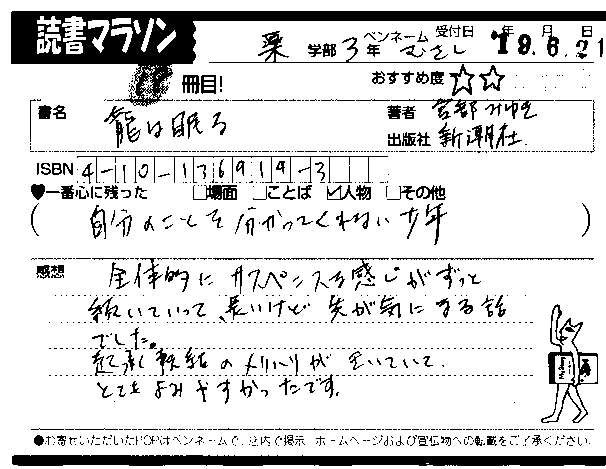 読書マラソン
薬 学部 3年 ペンネーム むさし 受付日 '19年 6月 21日
冊目!
おすすめ度 ☆☆
書名 龍は眠る
著者 宮部みゆき
出版社 新潮社
ISBN 4-10-136914-3
♥一番心に残った □場面 □ことば ☑人物 □その他
(自分のことを分かってくれない少年)
感想 全体的にサスペンスな感じがずっと
続いていって、長いけど先が気になる話
でした。
起承転結のメリハリが
とてもよみやすかったです。
●お寄せいただいたPOPはペンネームで、店内で掲示、ホームページおよび宣伝物への転載をご了承ください。